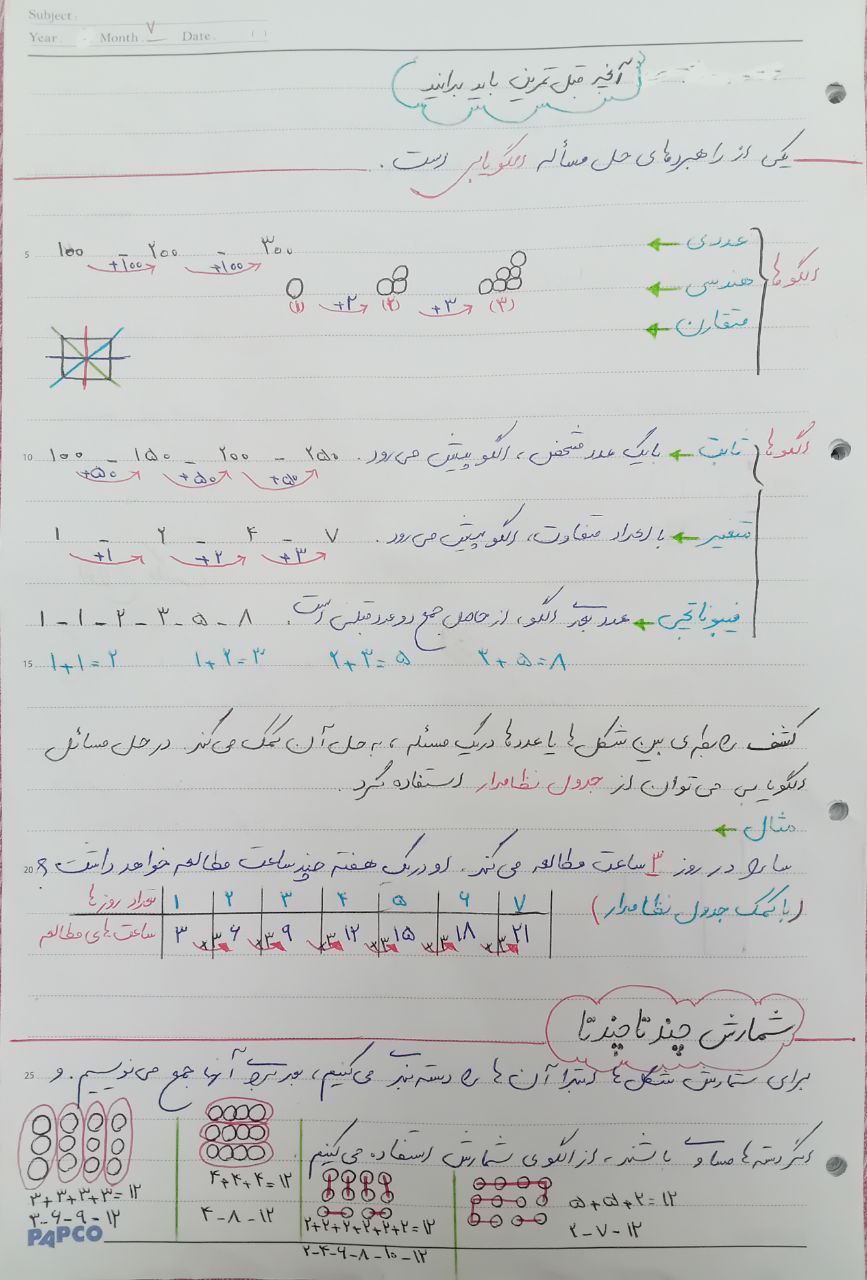 Subject:
Year. Month. ۷ Date.
آنچه قبل تمرین باید بدانید
یکی از راهبردهای حل مسأله الگویابی است.
الگوها
عددی ← ۱۰۰ - ۲۰۰ - ۳۰۰
+۱۰۰ +۱۰۰
هندسی ←
(۱) +۲ (۲) +۳ (۳)
متقارن ←
الگوها
ثابت ← با یک عدد مشخص، الگو پیش می‌رود. ۱۰۰ - ۱۵۰ - ۲۰۰ - ۲۵۰
+۵۰ +۵۰ +۵۰
متغیر ← با اعداد متفاوت، الگو پیش می‌رود. ۱ - ۲ - ۴ - ۷
+۱ +۲ +۳
فیبوناتچی ← عدد بعدی الگو، از حاصل جمع دو عدد قبلی است. ۱ - ۱ - ۲ - ۳ - ۵ - ۸
۱+۱=۲ ۱+۲=۳ ۲+۳=۵ ۳+۵=۸
کشف رابطه‌ی بین شکل‌ها یا عددها در یک مسئله، به حل آن کمک می‌کند. در حل مسائل
الگویابی می‌توان از جدول نظامدار استفاده کرد.
مثال ←
سارا در روز ۳ ساعت مطالعه می‌کند. او در یک هفته چند ساعت مطالعه خواهد داشت؟
(با کمک جدول نظامدار)
تعداد روزها ۱ ۲ ۳ ۴ ۵ ۶ ۷
ساعت‌های مطالعه ۳ ۶ ۹ ۱۲ ۱۵ ۱۸ ۲۱
شمارش چند تا چند تا
برای شمارش شکل‌ها ابتدا آن‌ها را دسته‌بندی می‌کنیم، بعد برای آنها جمع می‌نویسیم. و
اگر دسته‌ها مساوی باشند، از الگوی شمارش استفاده می‌کنیم
۳+۳+۳+۳=۱۲
۳-۶-۹-۱۲
۴+۴+۴=۱۲
۴-۸-۱۲
۲+۲+۲+۲+۲+۲=۱۲
۲-۴-۶-۸-۱۰-۱۲
۵+۵+۲=۱۲
۲-۷-۱۲
PAPCO
5
10
15
20
25